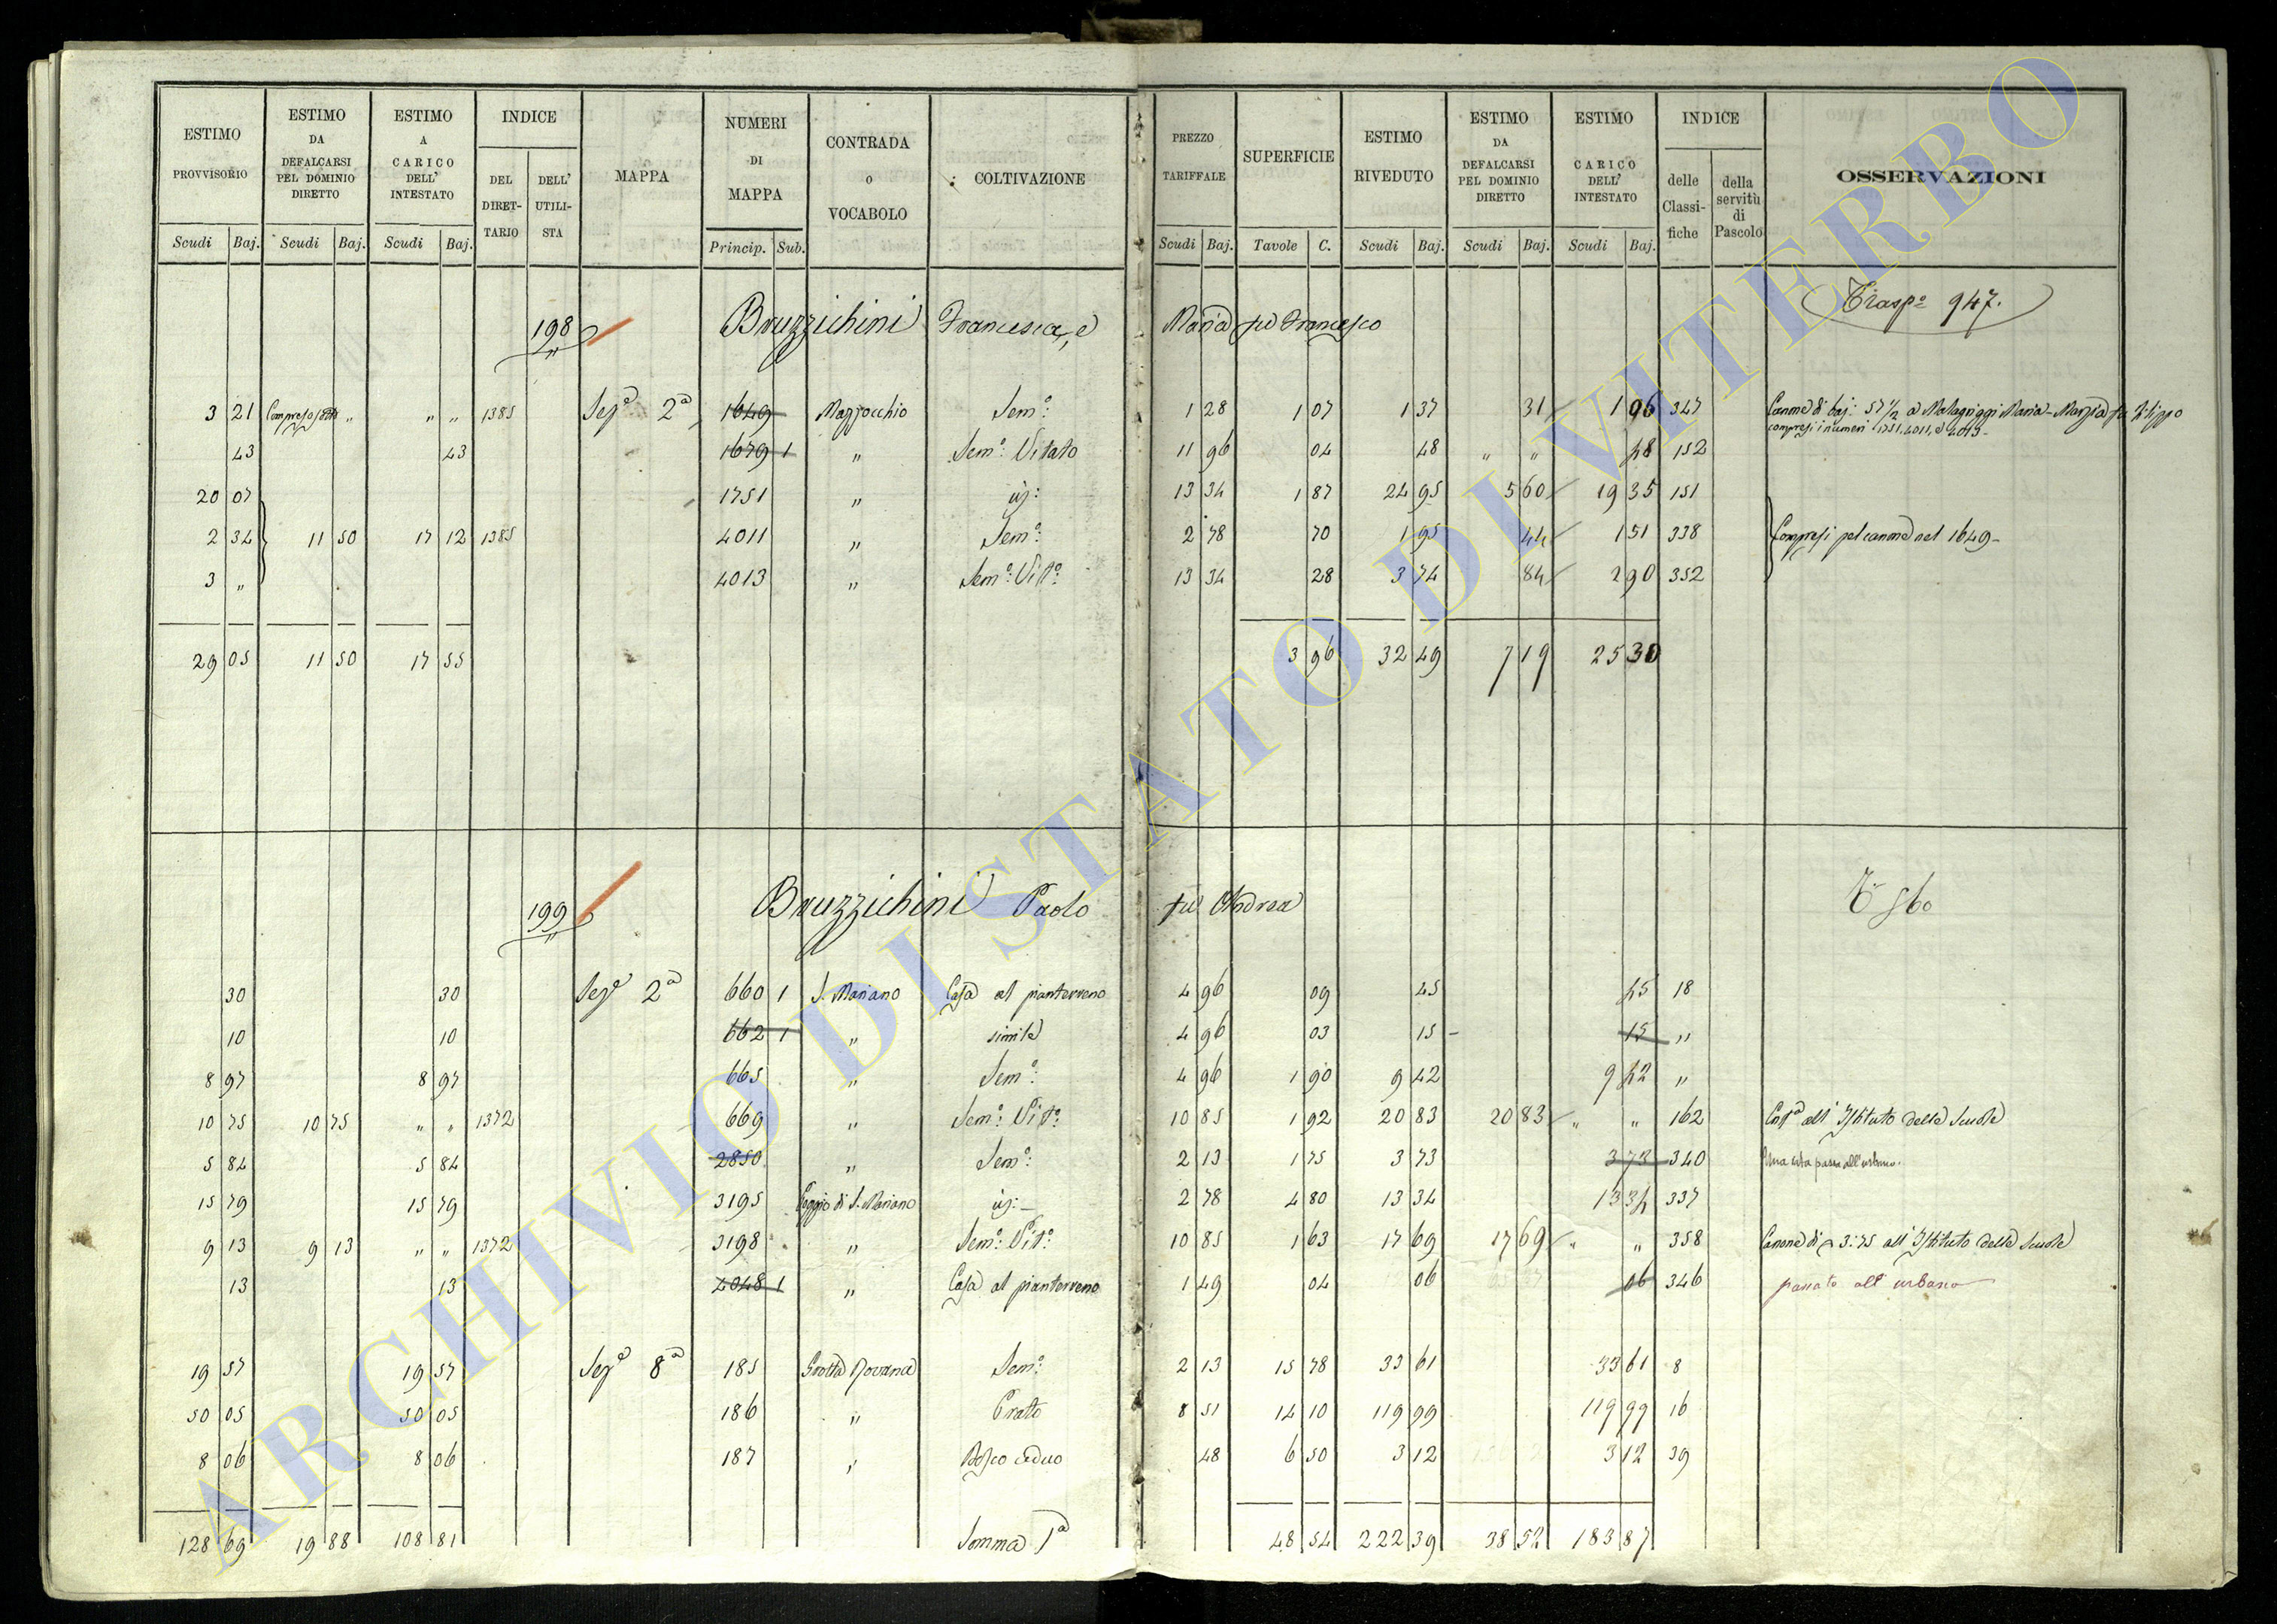 ESTIMO PROVVISORIO ESTIMO DA DEFALCARSI PEL DOMINIO DIRETTO ESTIMO A CARICO DELL' INTESTATO INDICE DEL DIRET-TARIO DELL' UTILI-STA MAPPA NUMERI DI MAPPA CONTRADA O VOCABOLO COLTIVAZIONE PREZZO TARIFFALE SUPERFICIE ESTIMO RIVEDUTO ESTIMO DA DEFALCARSI PEL DOMINIO DIRETTO ESTIMO A CARICO DELL' INTESTATO INDICE delle Classi-fiche della servitù di Pascolo OSSERVAZIONI
Scudi Baj. Scudi Baj. Scudi Baj. Princip. Sub. Scudi Baj. Tavole C. Scudi Baj. Scudi Baj. Scudi Baj.
Trasp.º 947.
198 Bruzzichini Francesca, e Maria fu Francesco
3 21 Compreso sotto " " " 1385 Sez.ª 2ª 1649 Mazzocchio Sem.º 1 28 1 07 1 37 31 1 06 347 Canone di baj: 57 1/2 a Malagriggi Maria-Marzia fu Filippo
compresi i numeri 1751, 4011, e 4013-
43 43 1679 1 " Sem.º Vitato 11 96 04 48 " " 48 152
20 07 1751 " id: 13 34 1 87 24 95 5 60 19 35 151
2 34 11 50 17 12 1385 4011 " Sem.º 2 78 70 1 95 44 1 51 338 Compresi pel canone nel 1649-
3 " 4013 " Sem.º Vit.º 13 34 28 3 74 84 2 90 352
29 05 11 50 17 55 3 96 32 49 7 19 25 30
199 Bruzzichini Paolo fu Andrea
30 30 Sez.ª 2ª 660 1 S. Mariano Casa al pianterreno 4 96 09 45 45 18
10 10 662 1 " simile 4 96 03 15 - 15 "
8 97 8 97 665 " Sem.º 4 96 1 90 9 42 9 42 "
10 75 10 75 " " 1372 669 " Sem.º Vit.º 10 85 1 92 20 83 20 83 " " 162 all' Istituto delle Scuole
5 84 5 84 2850 " Sem.º 2 13 1 75 3 73 3 73 340 Una rata passa all'urbano.
15 79 15 79 3195 Poggio di S. Mariano id:- 2 78 4 80 13 34 13 34 337
9 13 9 13 " " 1372 3198 " Sem.º Vit.º 10 85 1 63 17 69 17 69 " " 358 Canone di 3:75 all' Istituto delle Scuole
13 13 4048 1 " Casa al pianterreno 1 49 04 06 06 346 passato all' urbano
19 57 19 57 Sez.ª 8ª 185 Grotta Sem.º 2 13 15 78 33 61 33 61 8
50 05 50 05 186 " Prato 8 51 14 10 119 99 119 99 16
8 06 8 06 187 " Bosco ceduo 48 6 50 3 12 3 12 39
128 69 19 88 108 81 Somma 1ª 48 54 222 39 38 52 183 87
ARCHIVIO DI STATO DI VITERBO